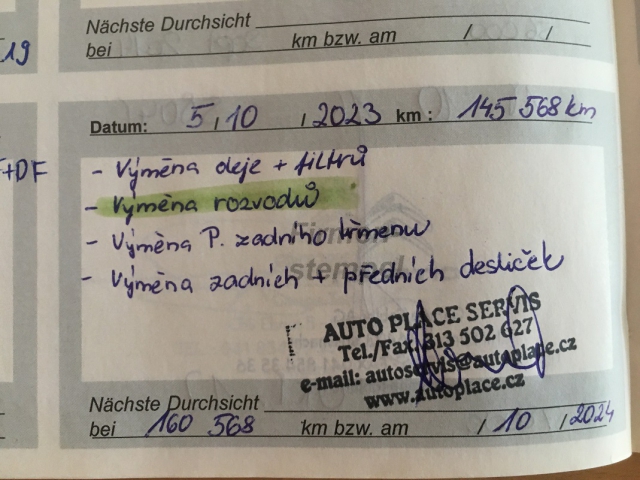 Nächste Durchsicht
bei km bzw. am / /
19
Datum: 5 / 10 / 2023 km: 145 568 km
+DF
- Výměna deje + filtrů
- Výměna rozvodů
- Výměna P. zadního třmenu
- Výměna zadních + předních destiček
Firmen-
stempel
AUTO PLACE SERVIS
Tel./Fax. 313 502 627
e-mail: autoservis@autoplace.cz
www.autoplace.cz
Nächste Durchsicht
bei 160 568 km bzw. am / 10 / 2024